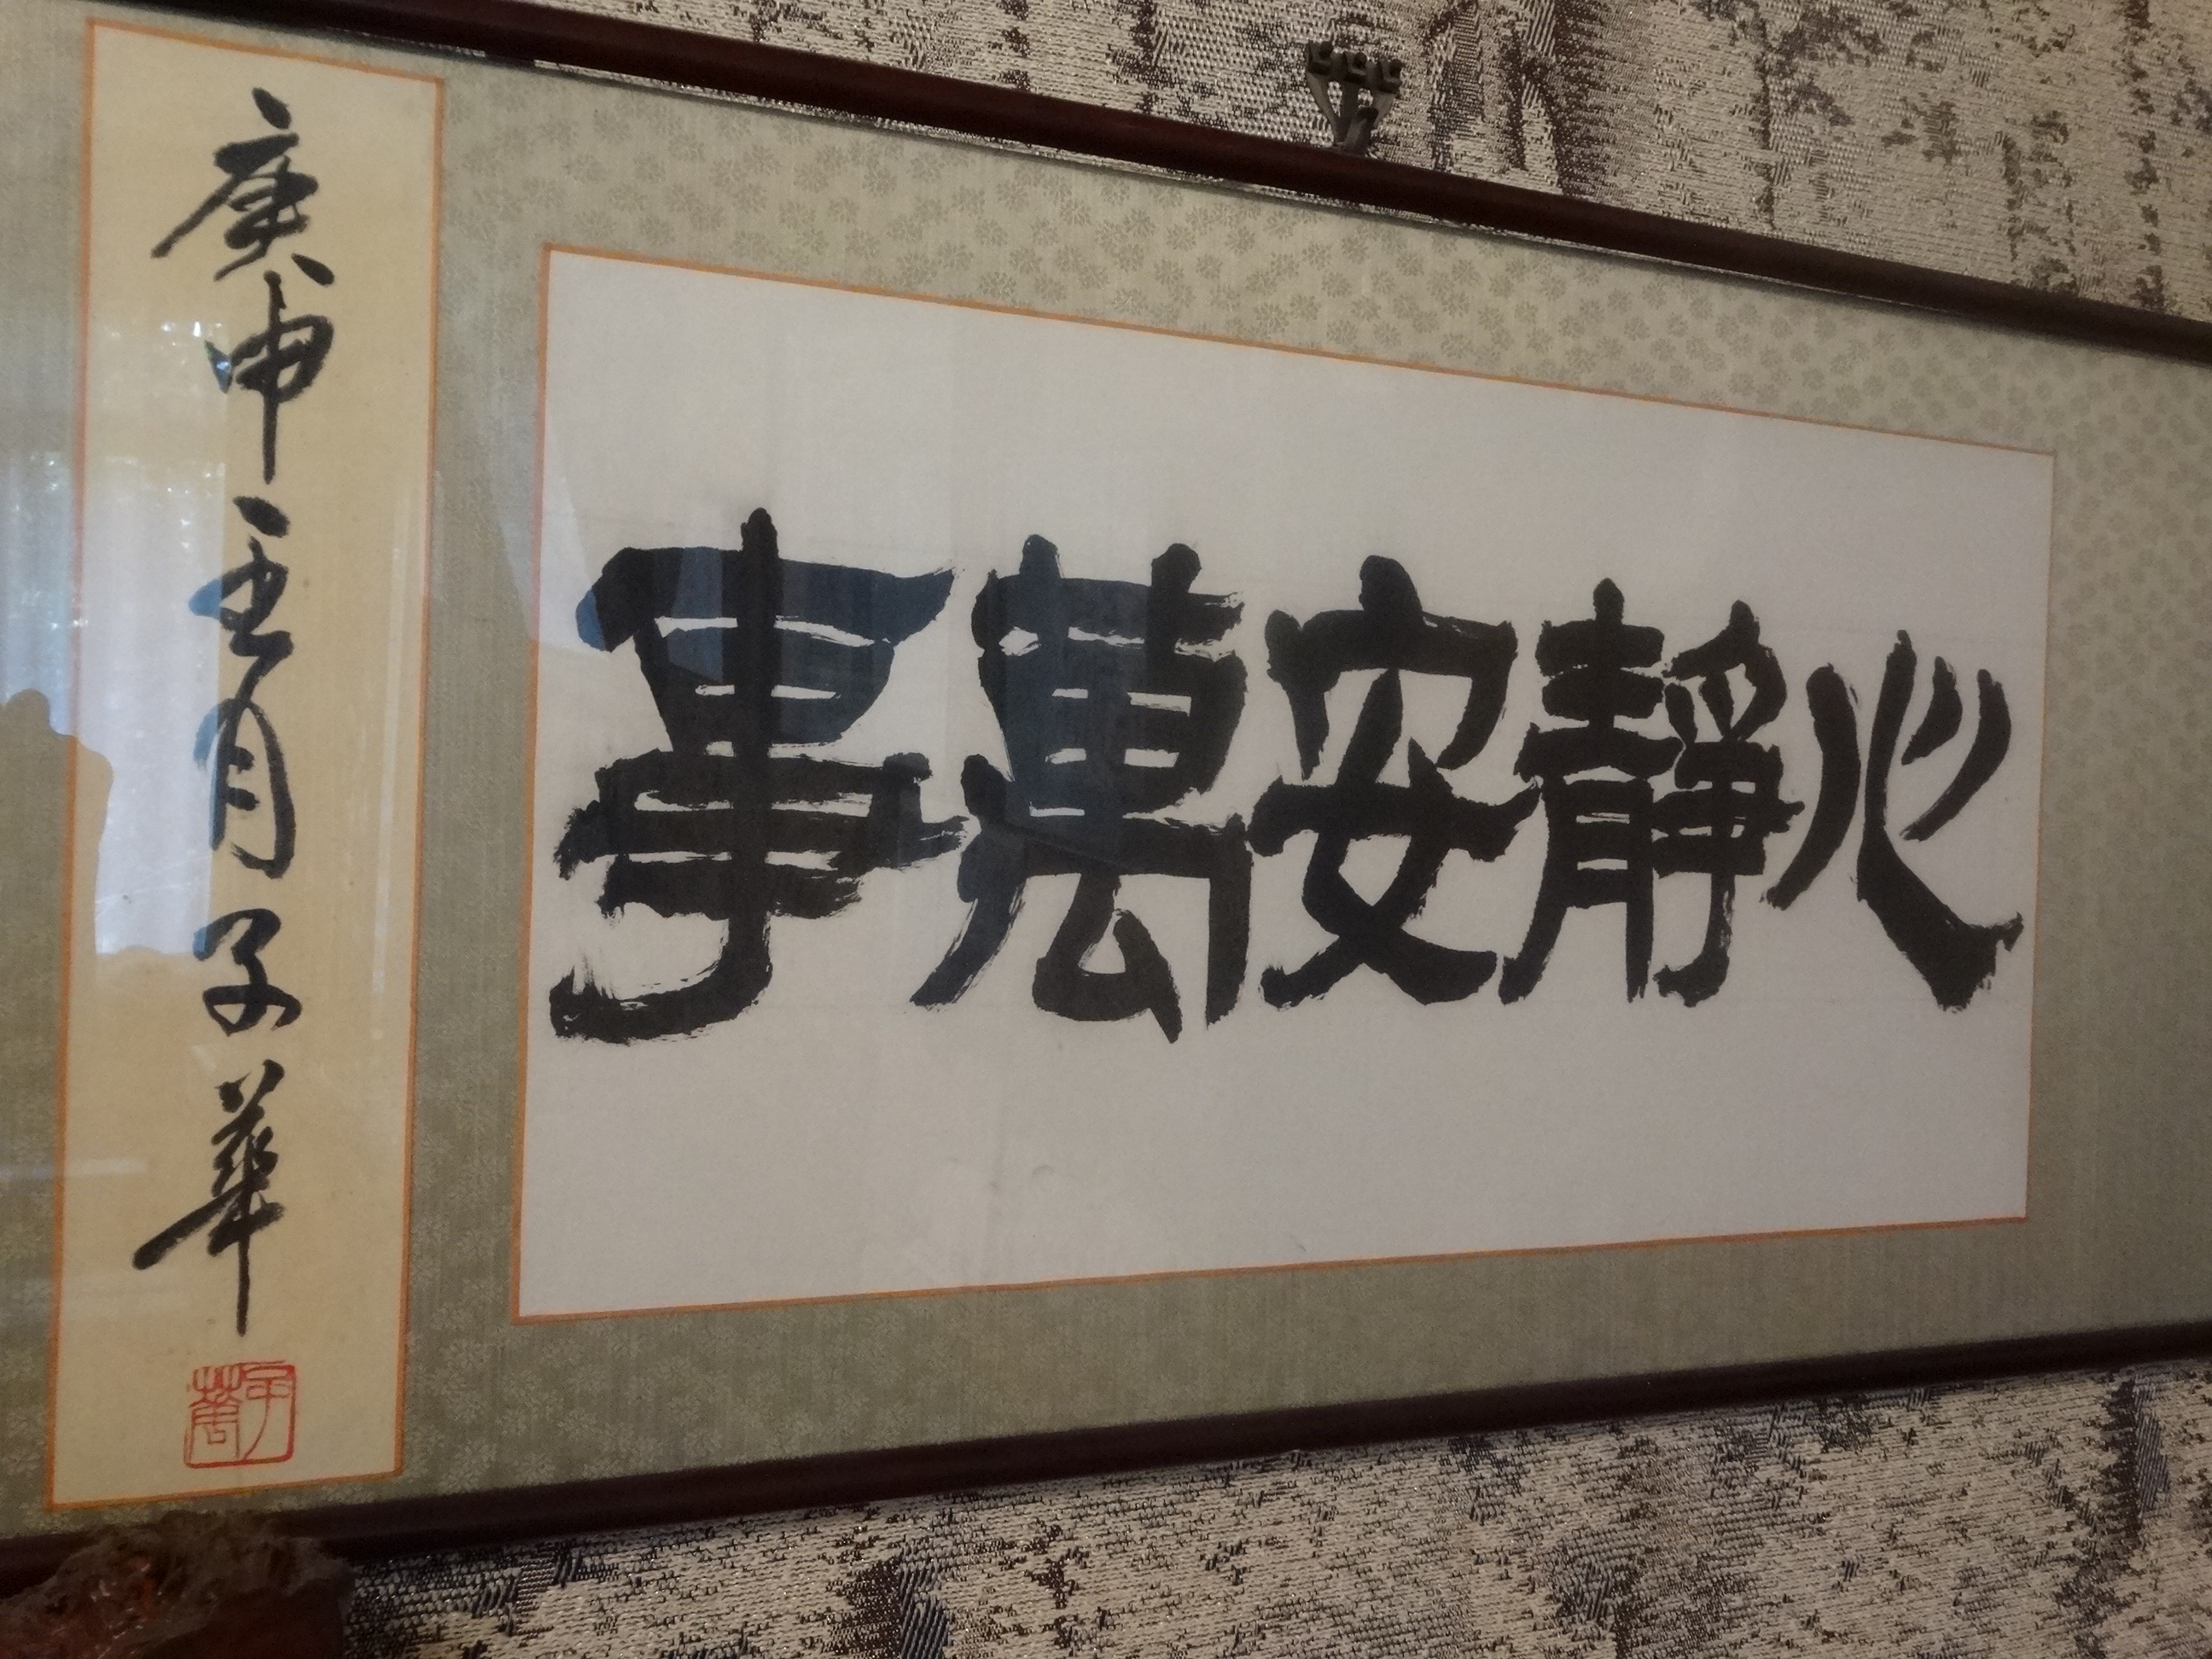 心靜安萬事
庚申主月子華